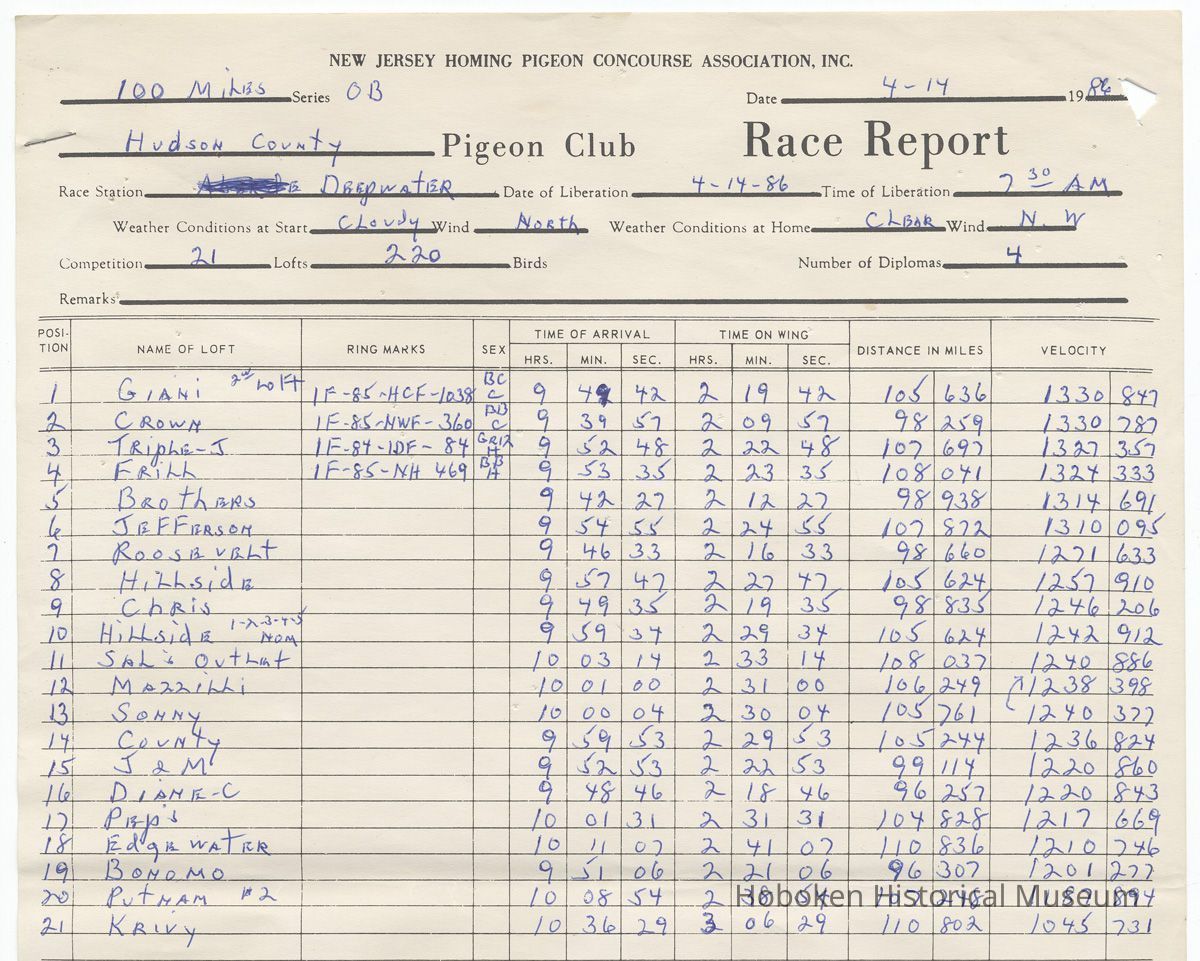 NEW JERSEY HOMING PIGEON CONCOURSE ASSOCIATION, INC.
100 Miles Series OB Date 4-14 1986
Hudson County Pigeon Club Race Report
Race Station Deepwater Date of Liberation 4-14-86 Time of Liberation 7 30 AM
Weather Conditions at Start Cloudy Wind North Weather Conditions at Home Clear Wind N.W
Competition 21 Lofts 220 Birds Number of Diplomas 4
Remarks
POSI-TION NAME OF LOFT RING MARKS SEX TIME OF ARRIVAL TIME ON WING DISTANCE IN MILES VELOCITY
HRS. MIN. SEC. HRS. MIN. SEC.
1 Giani 2nd Loft IF-85-HCF-1038 BC C 9 49 42 2 19 42 105 636 1330 847
2 Crown IF-85-NWF-360 BB C 9 39 57 2 09 57 98 259 1330 787
3 Triple-J IF-84-IDF-84 Griz H 9 52 48 2 22 48 107 697 1327 357
4 Frill IF-85-NH 469 BB H 9 53 35 2 23 35 108 041 1324 333
5 Brothers 9 42 27 2 12 27 98 938 1314 691
6 Jefferson 9 54 55 2 24 55 107 872 1310 095
7 Roosevelt 9 46 33 2 16 33 98 660 1271 633
8 Hillside 9 57 47 2 27 47 105 624 1257 910
9 Chris 9 49 35 2 19 35 98 835 1246 206
10 Hillside 1-2-3-4-5 Nom 9 59 34 2 29 34 105 624 1242 912
11 Sal's Outlet 10 03 14 2 33 14 108 037 1240 886
12 Mazzilli 10 01 00 2 31 00 106 249 1238 398
13 Sonny 10 00 04 2 30 04 105 761 1240 377
14 County 9 59 53 2 29 53 105 244 1236 824
15 J & M 9 52 53 2 22 53 99 114 1220 860
16 Diane-C 9 48 46 2 18 46 96 257 1220 843
17 Pep's 10 01 31 2 31 31 104 828 1217 669
18 Edgewater 10 11 07 2 41 07 110 836 1210 746
19 Bonomo 9 51 06 2 21 06 96 307 1201 277
20 Putnam #2 10 08 54 2 38 54 894
21 Krivy 10 36 29 3 06 29 110 802 1045 731
Hoboken Historical Museum